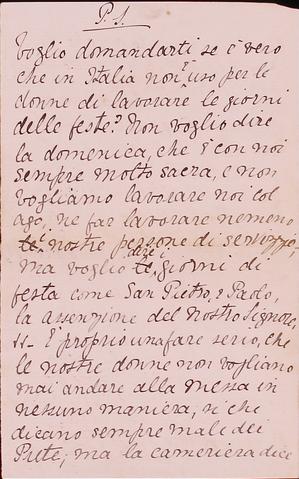 P. S.
Voglio domandarti se è vero
che in Italia non è uso per le
donne di lavorare le giorni
delle feste? Non voglio dire
la domenica, che è con noi
sempre molto sacra, e non
vogliamo lavorare noi col
ago, ne far lavorare nemeno
nostre persone di servizzio,
ma voglio dire i giorni di
festa come San Pietro, e Paolo,
la assenzione del nostro Signore,
È proprio un afare serio, che
le nostre donne non vogliano
mai andare alla Messa in
nessuno maniera, si che
dicano sempre male dei
Prete; ma la cameriera dice